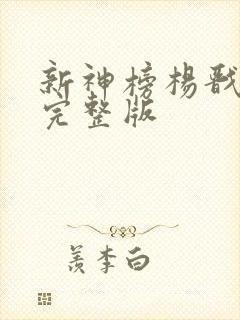 新神榜杨戬
完整版
羡李白